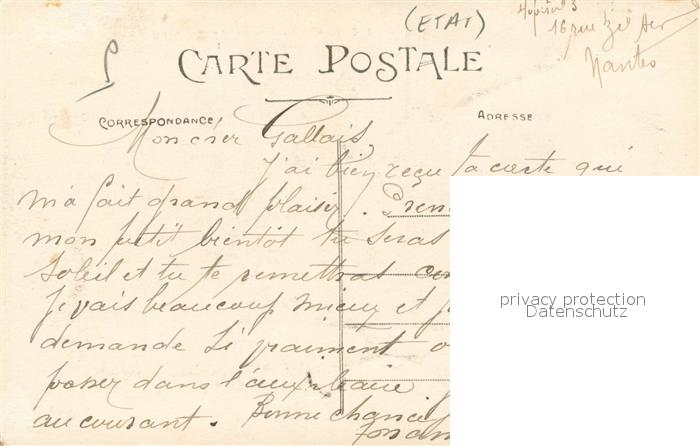 (ETAT)
16 rue
Nantes
CARTE POSTALE
CORRESPONDANCE
ADRESSE
Mon cher Gallais,
J'ai bien reçu ta carte qui
m'a fait grand plaisir. Pren
mon petit bientôt tu seras
soleil et tu te remettras com
Je vais beaucoup mieux et j
demande si vraiment o
passer dans l'auxiliaire
au courant. Bonne chance
privacy protection
Datenschutz